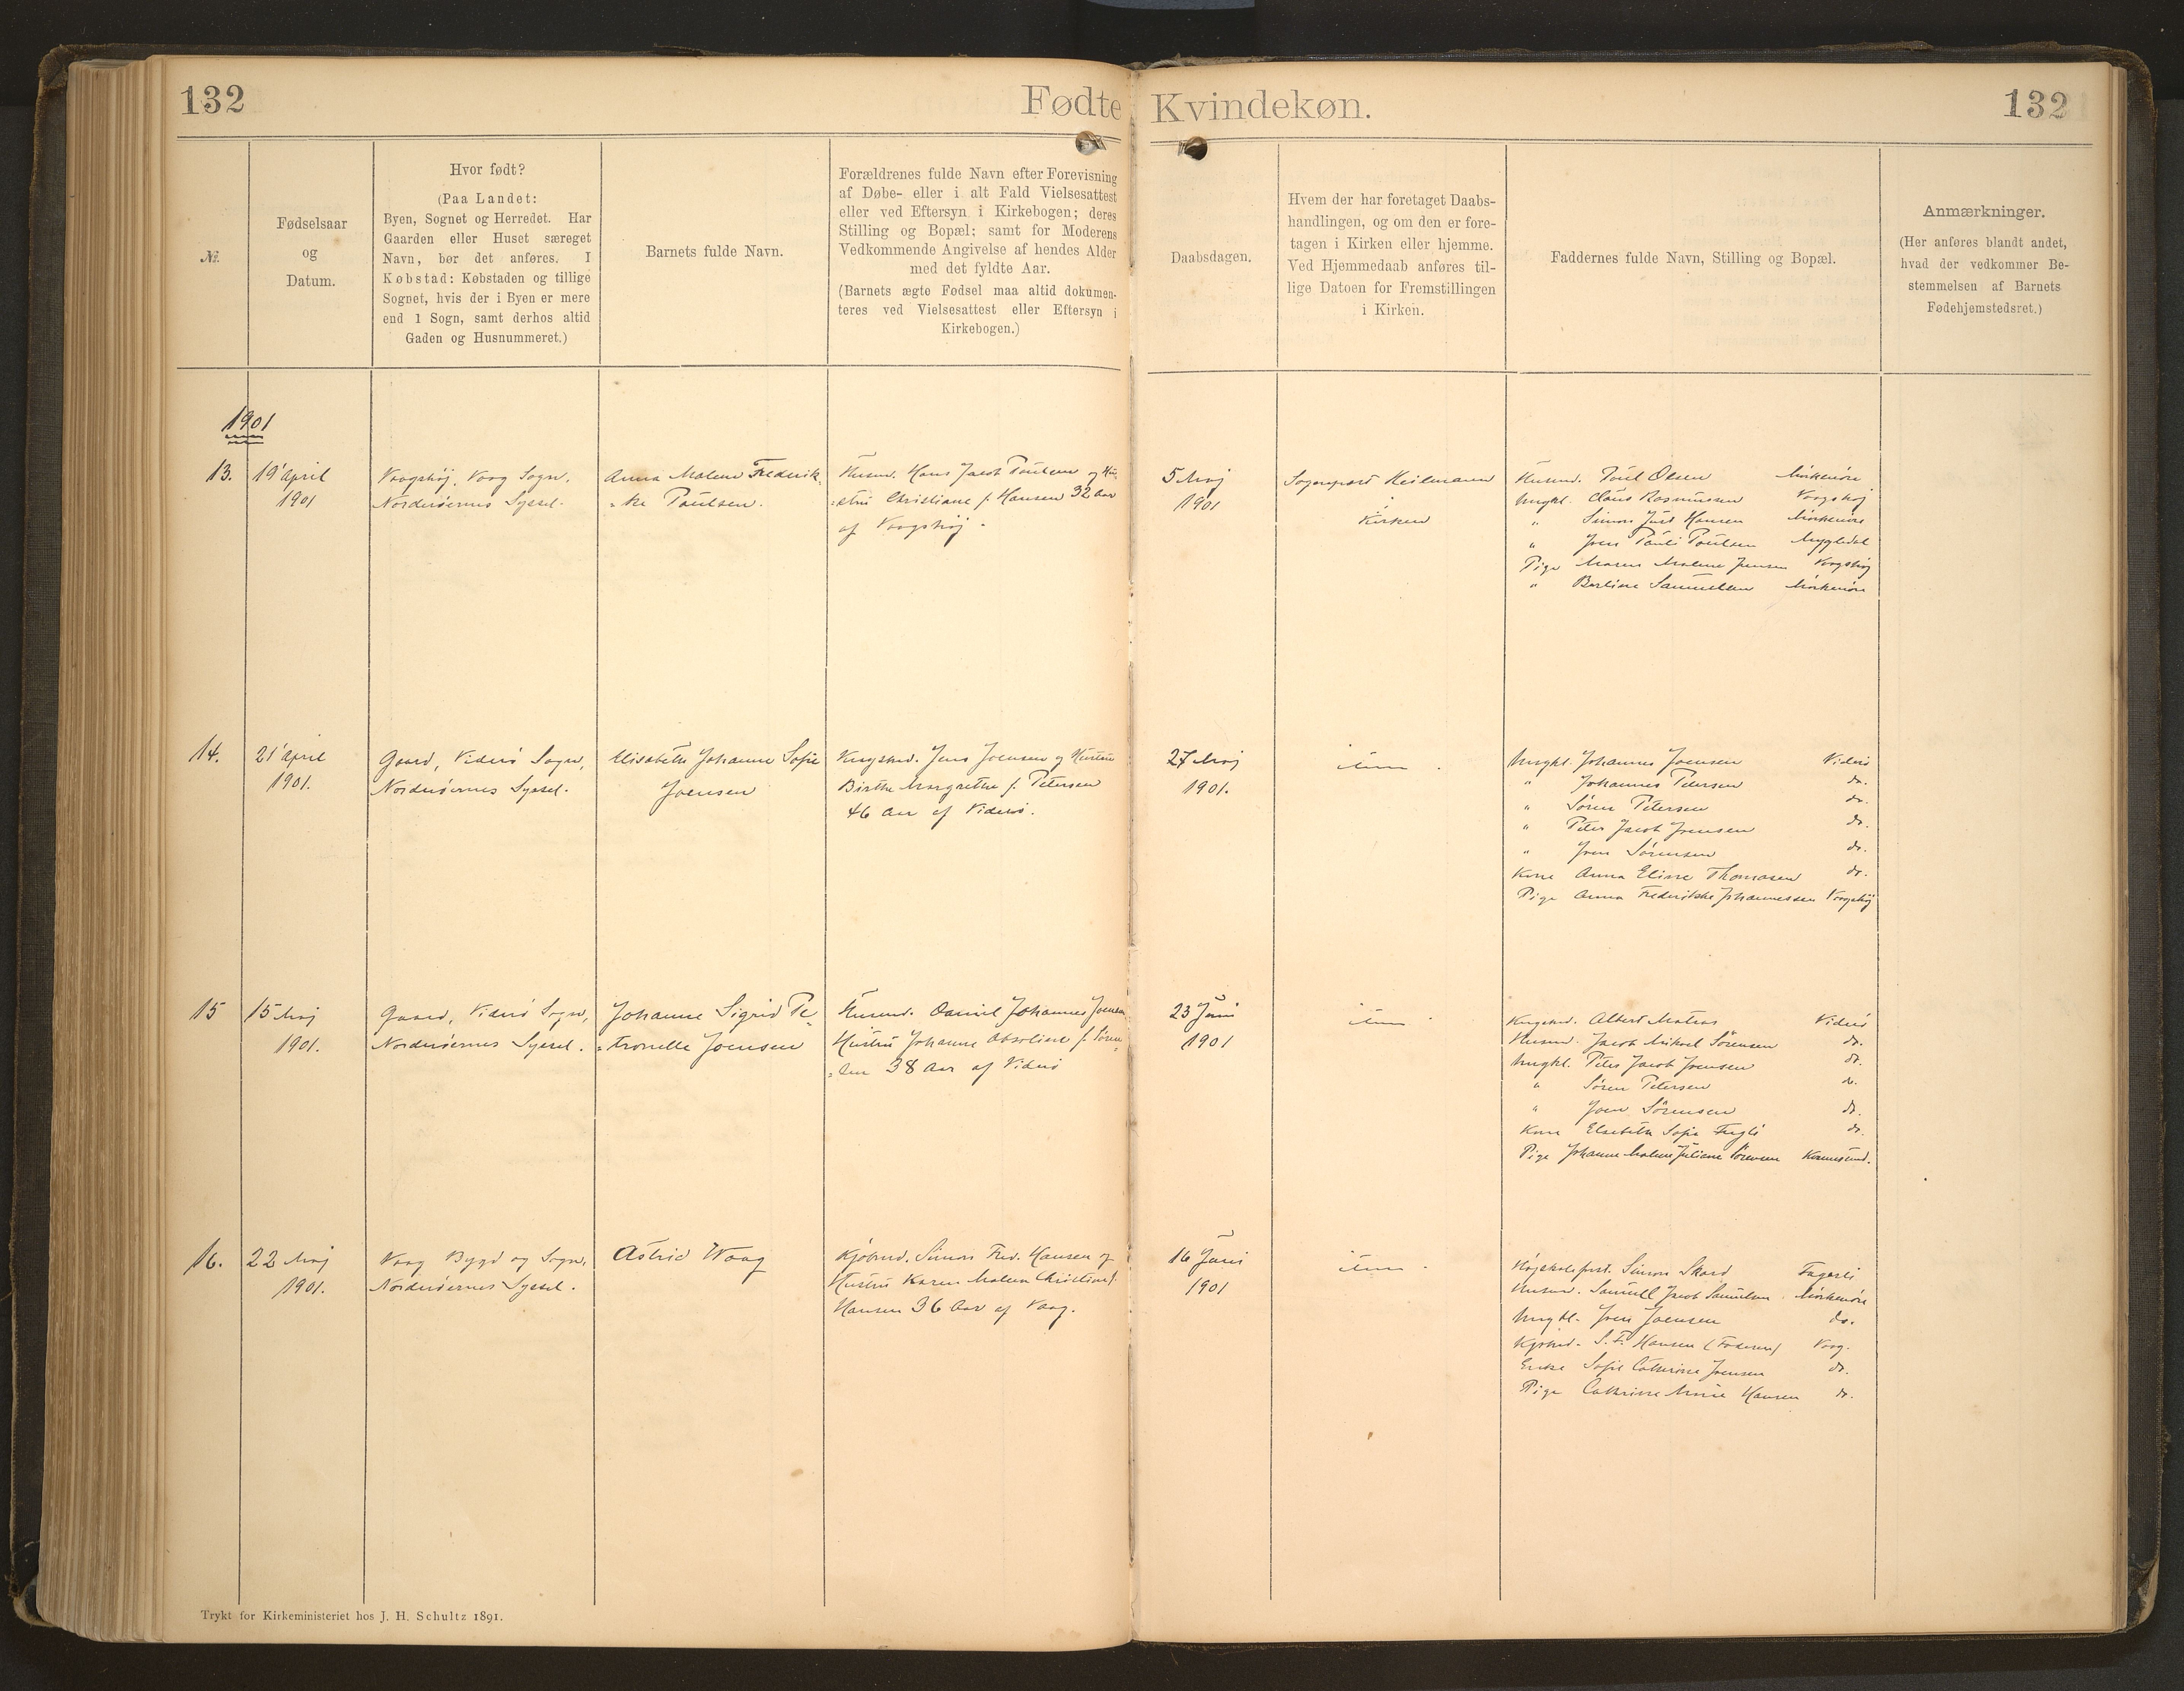 132
Fødte
Kvindekøn.
132
№.
Fødselsaar
og
Datum.
Hvor født?
(Paa Landet:
Byen, Sognet og Herredet. Har
Gaarden eller Huset særeget
Navn, bør det anføres. I
Købstad: Købstaden og tillige
Sognet, hvis der i Byen er mere
end 1 Sogn, samt derhos altid
Gaden og Husnummeret.)
Barnets fulde Navn.
Forældrenes fulde Navn efter Forevisning
af Døbe- eller i alt Fald Vielsesattest
eller ved Eftersyn i Kirkebogen; deres
Stilling og Bopæl; samt for Moderens
Vedkommende Angivelse af hendes Alder
med det fyldte Aar.
(Barnets ægte Fødsel maa altid dokumen-
teres ved Vielsesattest eller Eftersyn i
Kirkebogen.)
Daabsdagen.
Hvem der har foretaget Daabs-
handlingen, og om den er fore-
tagen i Kirken eller hjemme.
Ved Hjemmedaab anføres til-
lige Datoen for Fremstillingen
i Kirken.
Faddernes fulde Navn, Stilling og Bopæl.
Anmærkninger.
(Her anføres blandt andet,
hvad der vedkommer Be-
stemmelsen af Barnets
Fødehjemstedsret.)
1901
13.
19 April
1901
Vaagshøj, Vaag Sogn,
Norderøernes Syssel.
Anna Malene Frederik-
ke Poulsen.
Husmd. Hans Jacob Poulsen og Hu-
stru Christiane f. Hansen 32 Aar
af Vaagshøj.
5 Maj
1901
Sognepræst Heilmann
i
Kirken
Husmd. Poul Olsen Mörkenöre
Ungkl. Claus Rasmussen Vaagshøj
" Simon Hansen Mörkenöre
" Joen Pauli Poulsen Myggedal
Pige Maren Malene Jensen Vaagshøj
" Berline Samuelsen Mörkenöre
14.
21 April
1901.
Gaard, Viderø Sogn,
Norderøernes Syssel.
Elisabeth Johanne Sofie
Joensen
Kngsmd. Jens Joensen og Hustru
Birthe Margrethe f. Petersen
46 Aar af Viderø.
27 Maj
1901.
item.
Ungkl. Johannes Joensen Viderø
" Johannes Petersen do.
" Søren Petersen do.
" Peter Jacob Joensen do.
" Joen Sørensen do.
Kone Anna Eline Thomasen do.
Pige Anna Frederikke Johannessen Vaagshøj
15
15 Maj
1901.
Gaard, Viderø Sogn,
Norderøernes Syssel.
Johanne Sigrid Pe-
tronelle Joensen
Husmd. Daniel Johannes Joensen
Hustru Johanne Absoline f. Søren-
sen 38 Aar af Viderø
23 Juni
1901
item.
Kngsmd. Albert Matras Viderø
Husmd. Jacob Mikael Sørensen do.
Ungkl. Peter Jacob Joensen do.
" Søren Petersen do.
" Joen Sørensen do.
Kone Elsebeth Sofie Fuglø do.
Pige Johanne Malene Juliane Sørensen
16.
22 Maj
1901.
Vaag Bygd og Sogn,
Norderøernes Syssel.
Astrid Waag
Kjøbmd. Simon Fred. Hansen og
Hustru Karen Malene Christine f.
Hansen 36 Aar af Vaag.
16 Juni
1901
item.
Højskolefost. Simon Skard Fagerli
Husmd. Samuell Jacob Samuelsen Mörkenöre
Ungkl. Joen Joensen do.
Kjøbmd. S. F. Hansen (Faderen) Vaag.
Enke Sofie Cathrine Joensen do.
Pige Cathrine Marie Hansen do.
Trykt for Kirkeministeriet hos J. H. Schultz 1891.